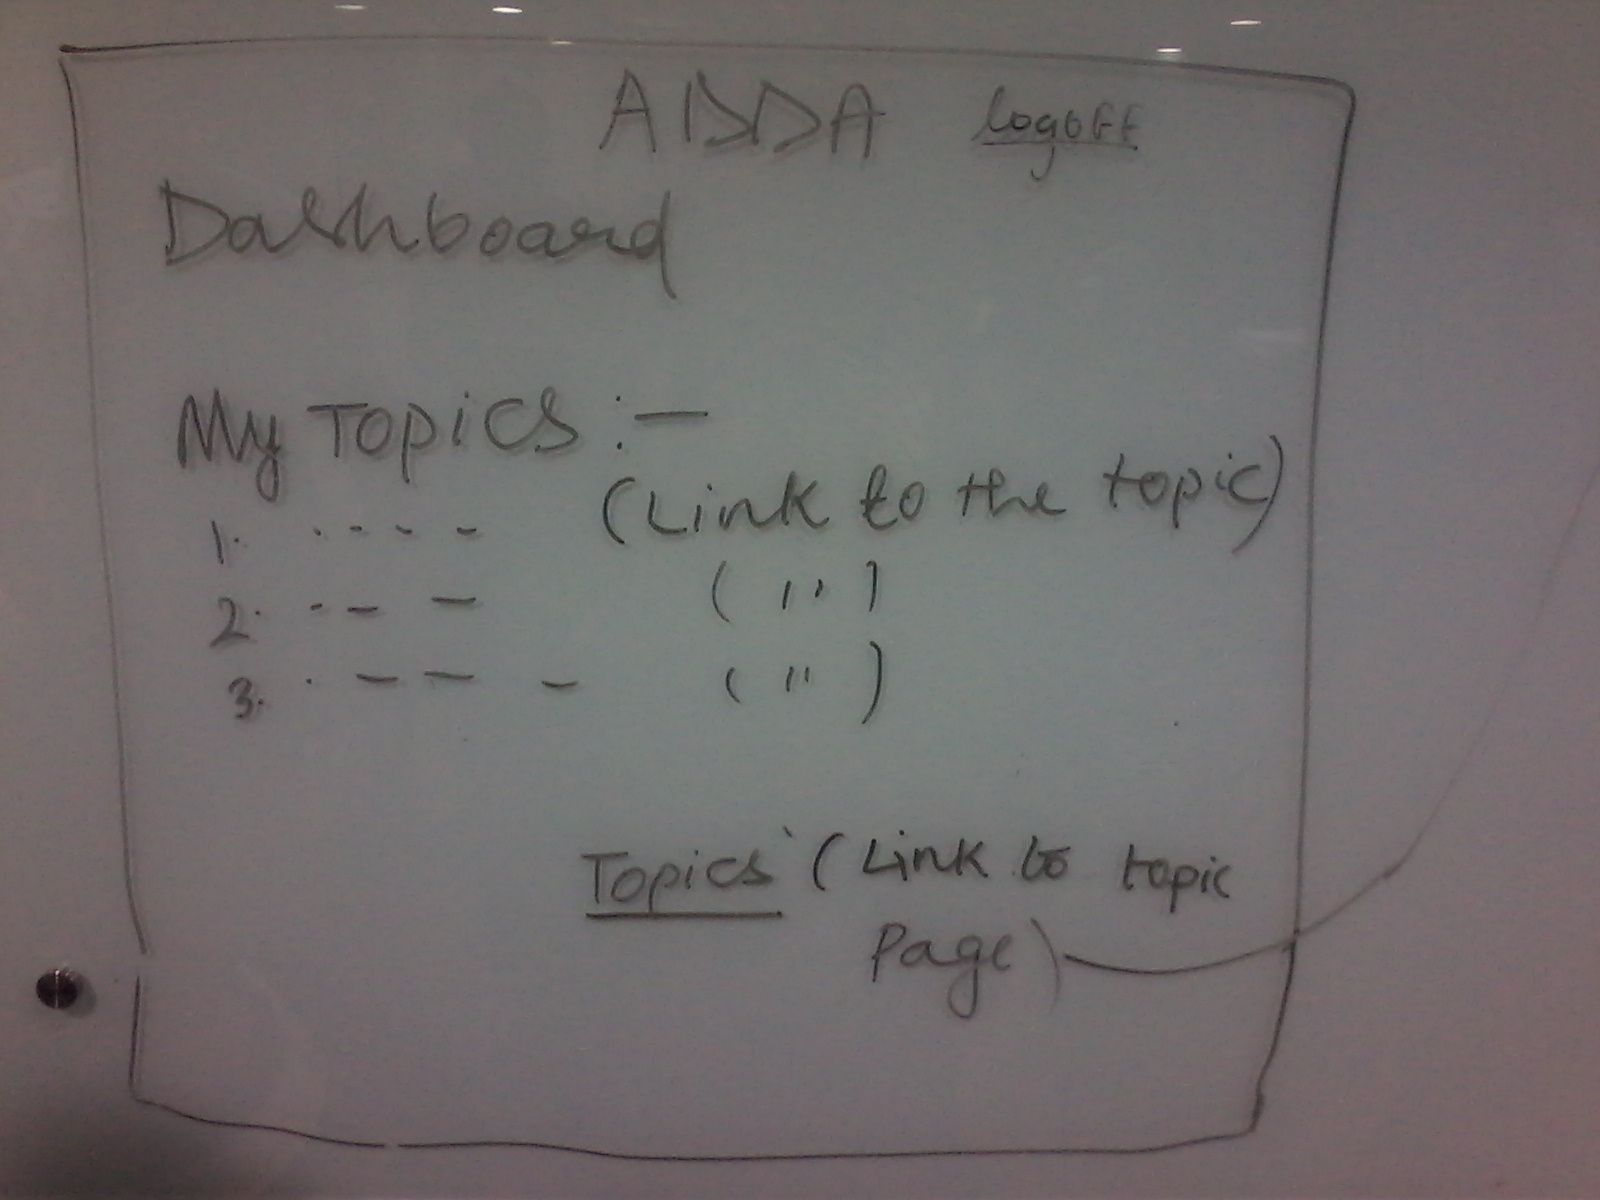 ADDA logoff
Dashboard
My Topics :-
1. . - - - - (Link to the topic)
2. - - - ( " )
3. . - - - ( " )
Topics (Link to topic
Page)